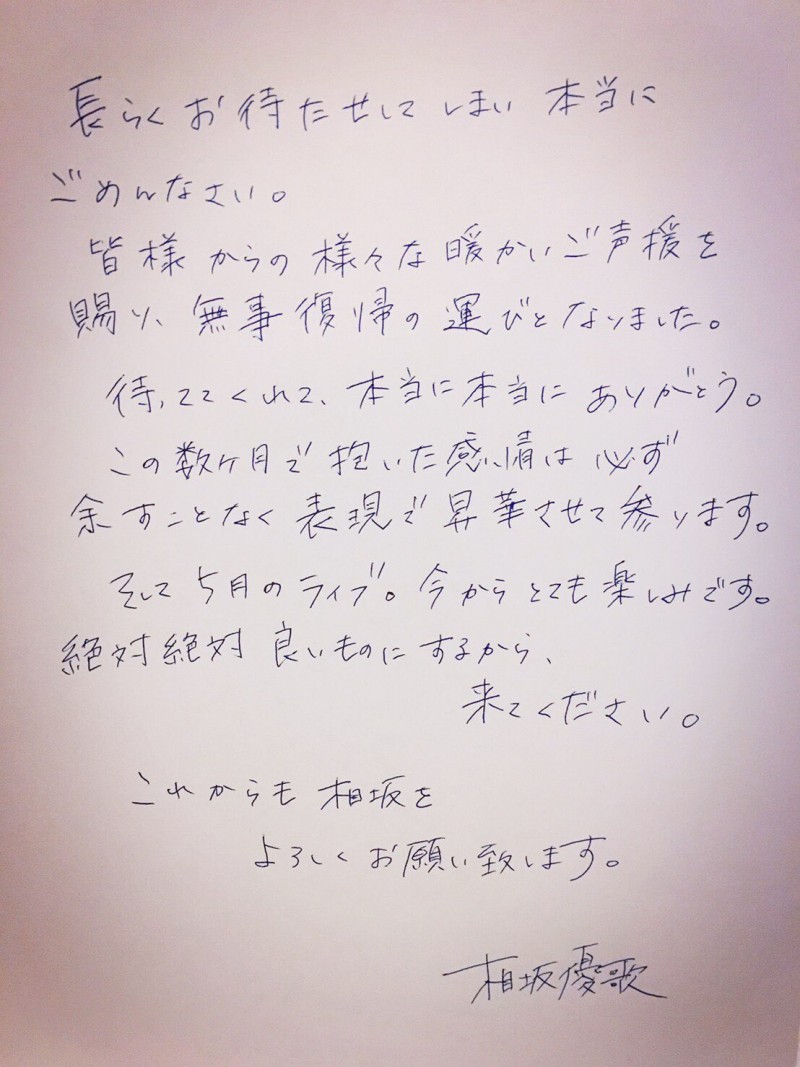 長らくお待たせしてしまい 本当に
ごめんなさい。
皆様からの様々な暖かいご声援を
賜り、無事復帰の運びとなりました。
待っててくれて、本当に本当にありがとう。
この数ケ月で抱いた感情は必ず
余すことなく表現で昇華させて参ります。
そして5月のライブ。今からとても楽しみです。
絶対絶対良いものにするから、
来てください。
これからも相坂を
よろしくお願い致します。
相坂優歌